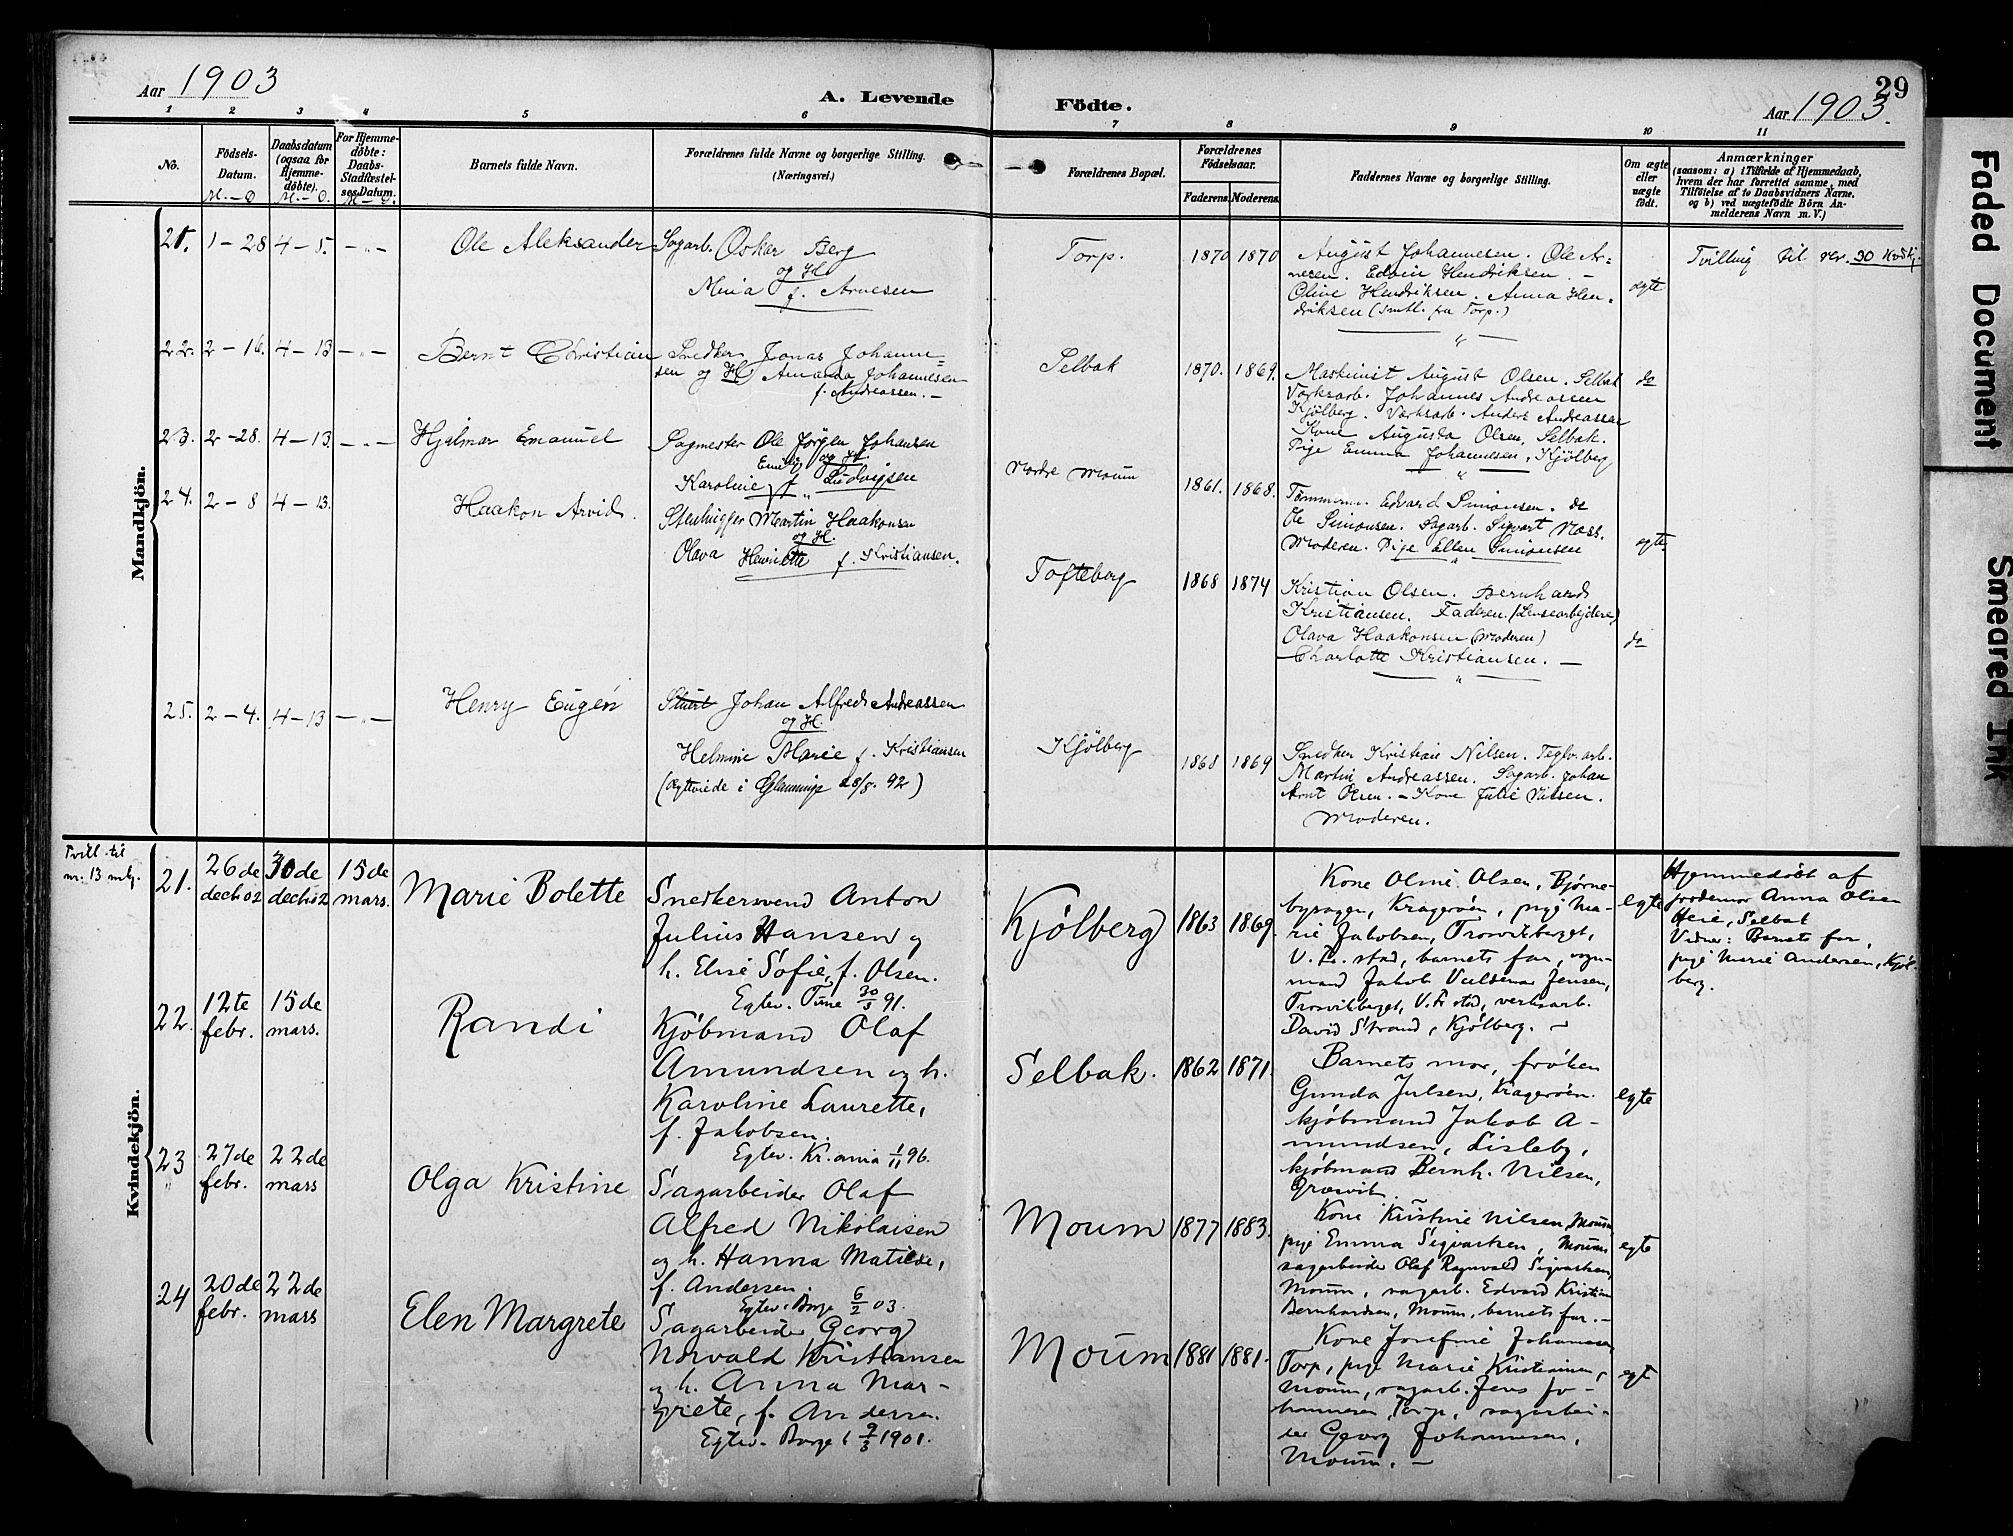 Aar 1903
A. Levende
Födte.
29
Aar 1903.
1 2 3 4 5 6 7 8 9 10 11
No.
Födsels-
Datum.
M. – D
Daabsdatum
(ogsaa for
Hjemme-
döbte).
M. – D.
For Hjemme-
döbte:
Daabs-
Stadfæstel-
ses Datum.
M – D.
Barnets fulde Navn.
Forældrenes fulde Navne og borgerlige Stilling.
(Næringsvei.)
Forældrenes Bopæl.
Forældrenes
Födselsaar.
Faderens. Moderens.
Faddernes Navne og borgerlige Stilling.
Om ægte
eller
uægte
født.
Anmærkninger
(saasom: a) i Tilfælde af Hjemmedaab,
hvem der har forrettet samme, med
Tilföielse af to Daabsvidners Navne,
og b) ved uægtefödte Börn An-
melderens Navn m. V.)
Mandkjön.
21. 1 – 28 4 – 5. – „ –
Ole Aleksander
Sagarb. Oskar Berg
og H
Mina f. Arnesen
Torp.
1870 1870
August Johannesen. Ole Ar=
nesen. Edvin Hendriksen. –
Oline Hendriksen. Anna Hen-
driksen (smtl. fra Torp.)
ægte
Tvilling til nr. 30 kvdkj.
22. 2 – 16. 4 – 13 – „ –
Bernt Christian
Snedker Jonas Johanne=
sen og H Amanda Johannesen
f. Andreassen. –
Selbak
1870. 1869.
Maskinist August Olsen. Selbak
Værksarb. Johannes Andreassen
Kjølberg. Værksarb. Anders Andreassen
Kone Augusta Olsen, Selbak.
Pige Emma Johannesen, Kjölberg
do
23. 2 – 28. 4 – 13. – „ –
Hjalmar Emanuel
Sagmester Ole Jørgen Johansen
Emilie og H.
Karoline f. Ludvigsen
Nordre Moum
1861. 1868.
Tømmerm. Edvard Simonsen. do
Ole Simonsen. Sagarb. Sigvart Moss.
Moderen. Pige Ellen Simonsen
egte
24. 2 – 8 4 – 13.
Haakon Arvid.
Stenhugger Martin Haakonsen
og H.
Olava Henriette f. Kristiansen.
Tofteberg
1868 1874
Kristian Olsen. Bernhard
Kristiansen. Faderen. (Lensearbejdere)
Olava Haakonsen (Moderen)
Charlotte Kristiansen. –
do
25. 2 – 4. 4 – 13 – „ –
Henry Eugén
Johan Alfred Andreassen
og H.
Helmine Marie f. Kristiansen
(Ægteviede i Glemminge 28/8. 92)
Kjølberg
1868 1869
Snedker Kristian Nilsen. Teglv. arb.
Martin Andreassen. Sagarb. Johan
Arnt Olsen. – Kone Julie Nilsen.
Moderen.
Kvindekjön.
Tvill. til
nr. 13 mkj.
21.
26de
decb 02
30de
decb 02
15de
mars.
Marie Bolette
Snedkersvend Anton
Julius Hansen og
h. Elise Sofie, f. Olsen.
Egtev. Tune 30/5 91.
Kjølberg
1863 1869.
Kone Oline Olsen, Bjørne-
bysagen, Kragerøen, pige Ma-
rie Jakobsen, Trosvikberget,
V. Fr. stad, barnets far, vogn-
mand Jakob Valdemar Jensen,
Trosvikberget, V. Fr stad, verksarb.
David Strand, Kjølberg. –
egte
Hjemmedöbt af
jordemor Anna Olsen
Heie, Selbak
Vidner: Barnets far,
pige Marie Andersen, Kjøl-
berg.
22.
12te
febr.
15de
mars.
Randi
Kjöbmand Olaf
Amundsen og h.
Karoline Laurette,
f. Jakobsen.
Egtev. Kr.ania 1/11 96.
Selbak.
1862 1871.
Barnets mor, frøken
Gunda Julsen, Kragerøen.
kjøbmand Jakob A-
mundsen, Lisleby,
kjøbmand Bernh. Nilsen,
Græsvik.
egte
23
27de
febr.
22de
mars
Olga Kristine
Sagarbeider Olaf
Alfred Nikolaisen
og h. Hanna Matilde,
f. Andersen.
Egtev. Borge 6/2 03.
Moum
1877 1883.
Kone Kristine Nilsen, Moum
pige Emma Sigvartsen, Moum
sagarbeider Olaf Ragnvald Sigvartsen,
Moum, sagarb. Edvard Kristian
Bernhardsen, Moum, barnets far. –
egte
24
20de
febr.
22de
mars
Elen Margrete
Sagarbeider Georg
Norvald Kristiansen
og h. Anna Mar-
grete, f. Andersen.
Egtev. Borge 9/3 1901.
Moum
1881 1881.
Kone Josefine Johannesen
Torp, pige Marie Kristiansen,
Moum, sagarb. Jens Jo-
hannesen, Torp, sagarbei-
der Georg Johannesen,
Moum. –
egt
Faded Document
Smeared Ink